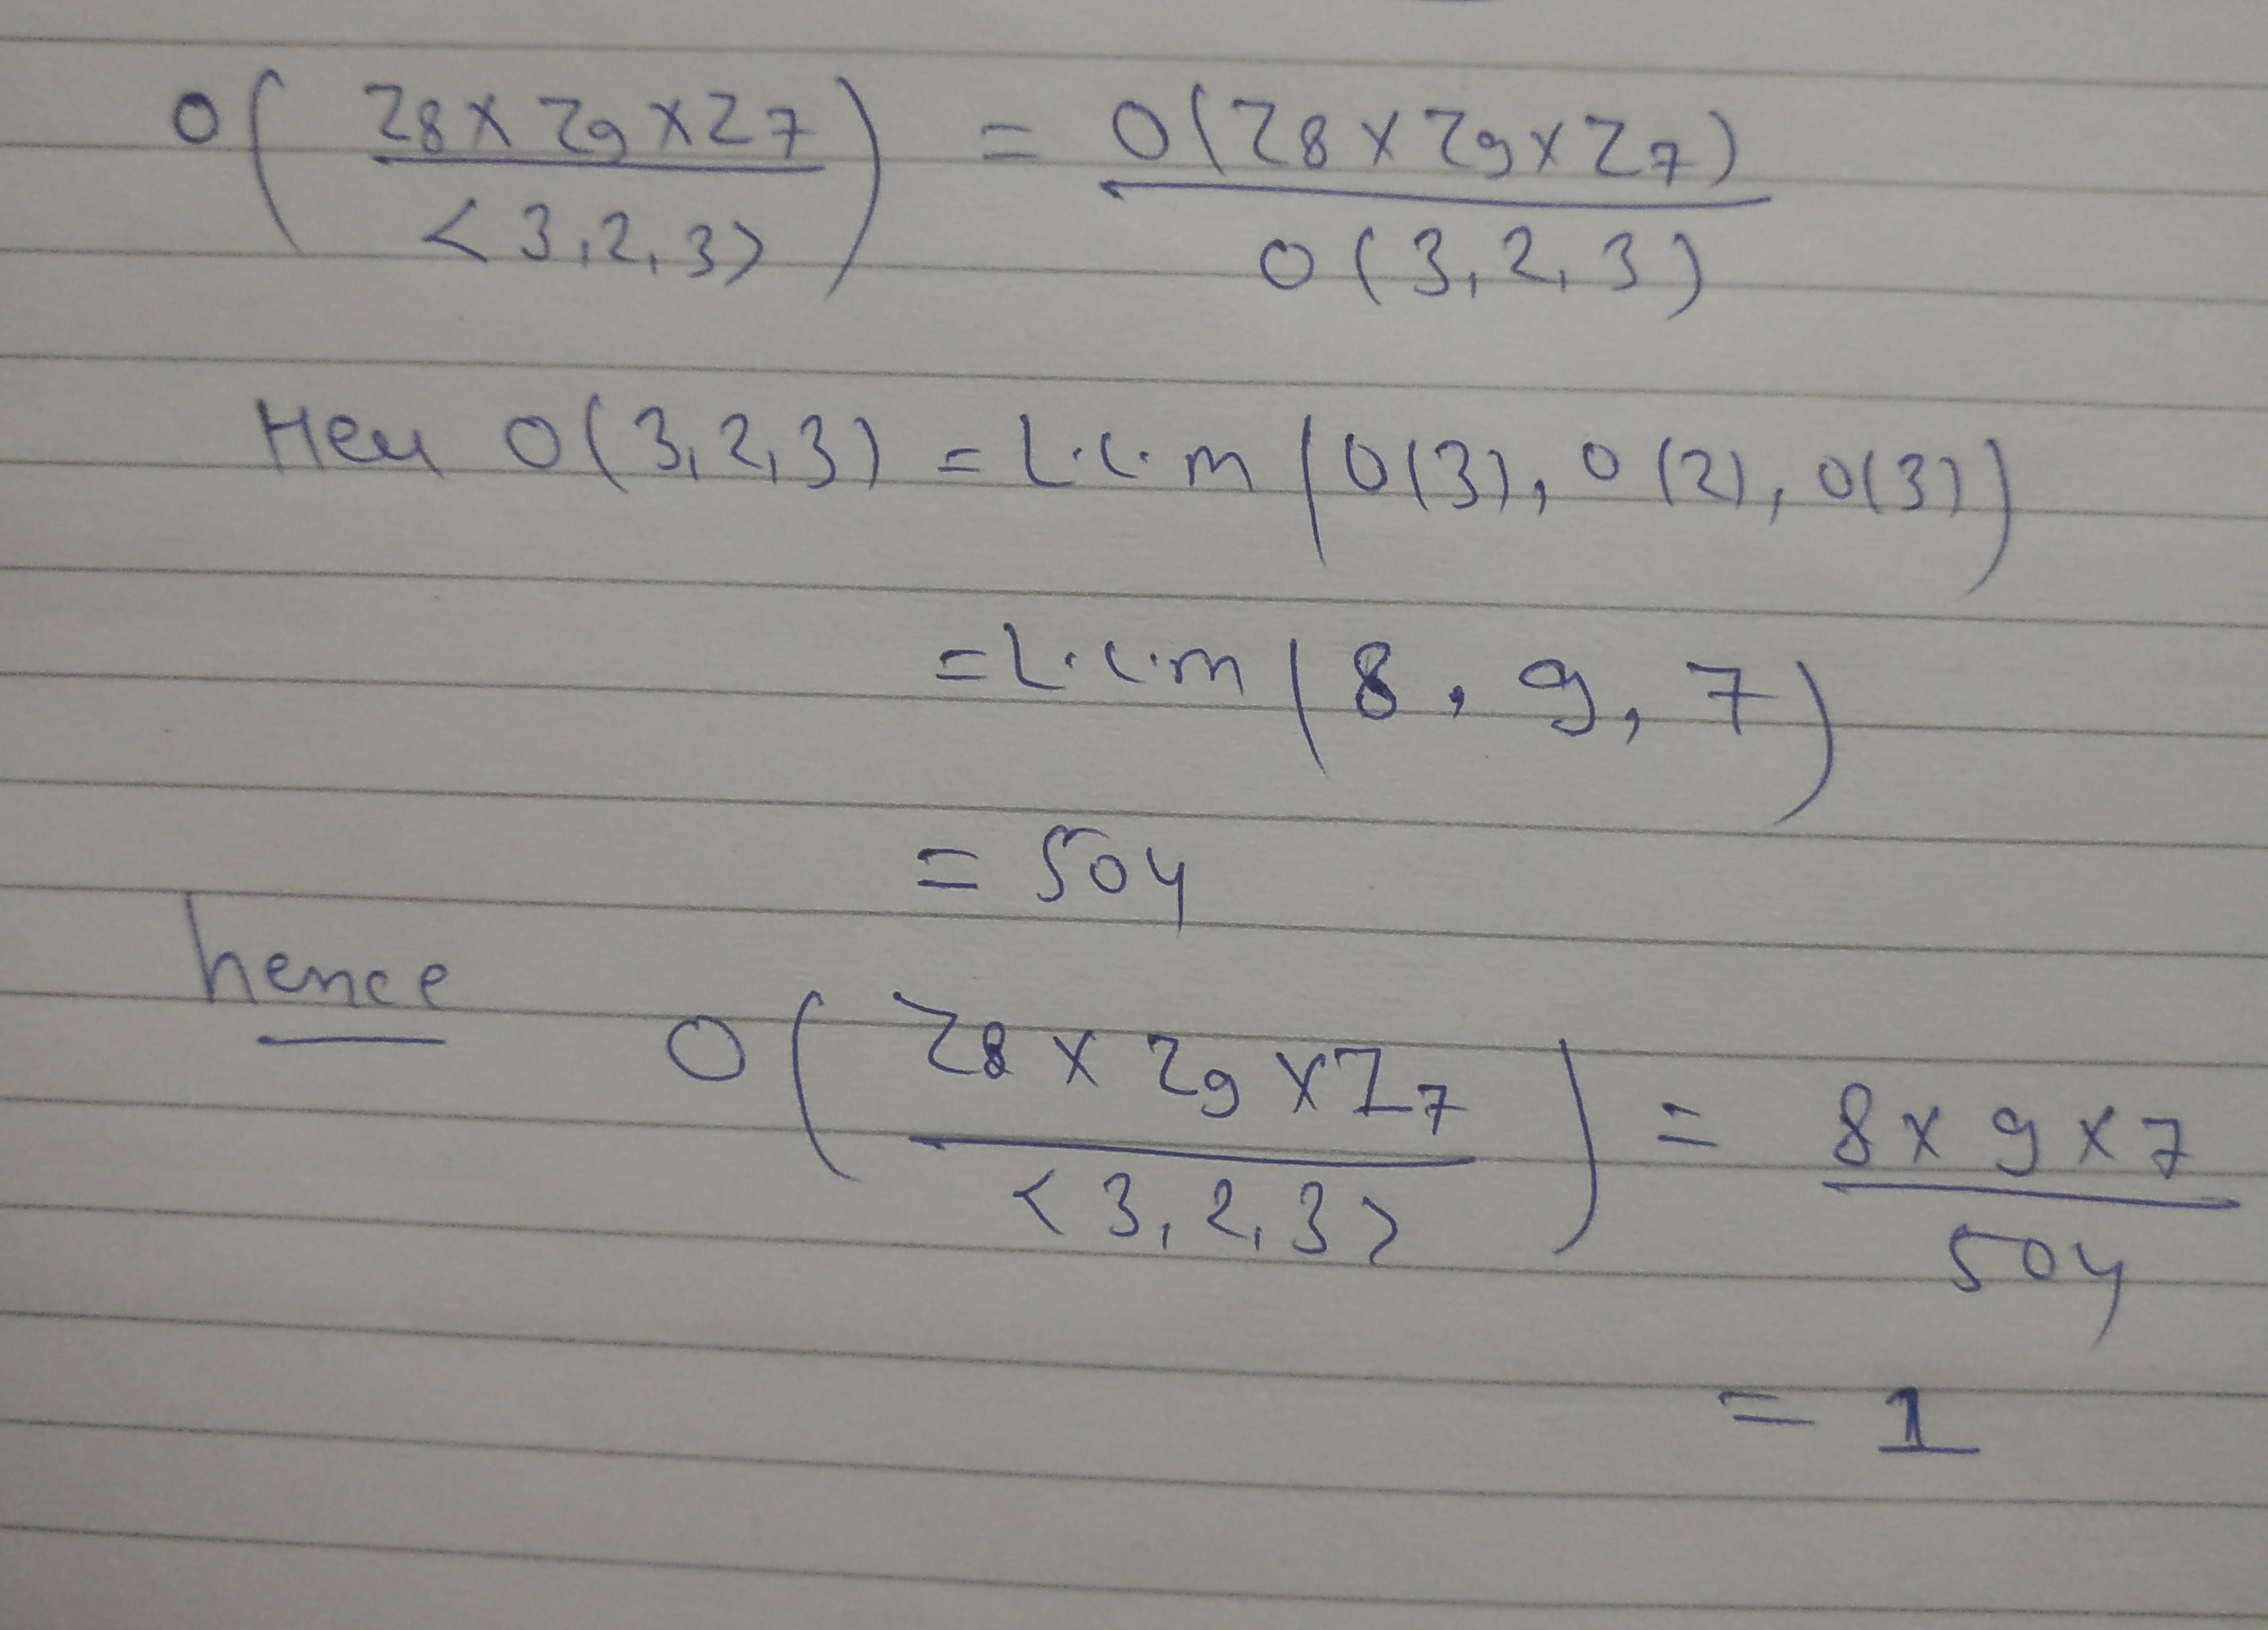 O( Z8 x Z9 x Z7 / <3,2,3> ) = O(Z8 x Z9 x Z7) / O(3,2,3)
Her O(3,2,3) = L.C.m (O(3), O(2), O(3))
= L.C.m (8, 9, 7)
= 504
hence O( Z8 x Z9 x Z7 / <3,2,3> ) = 8 x 9 x 7 / 504
= 1